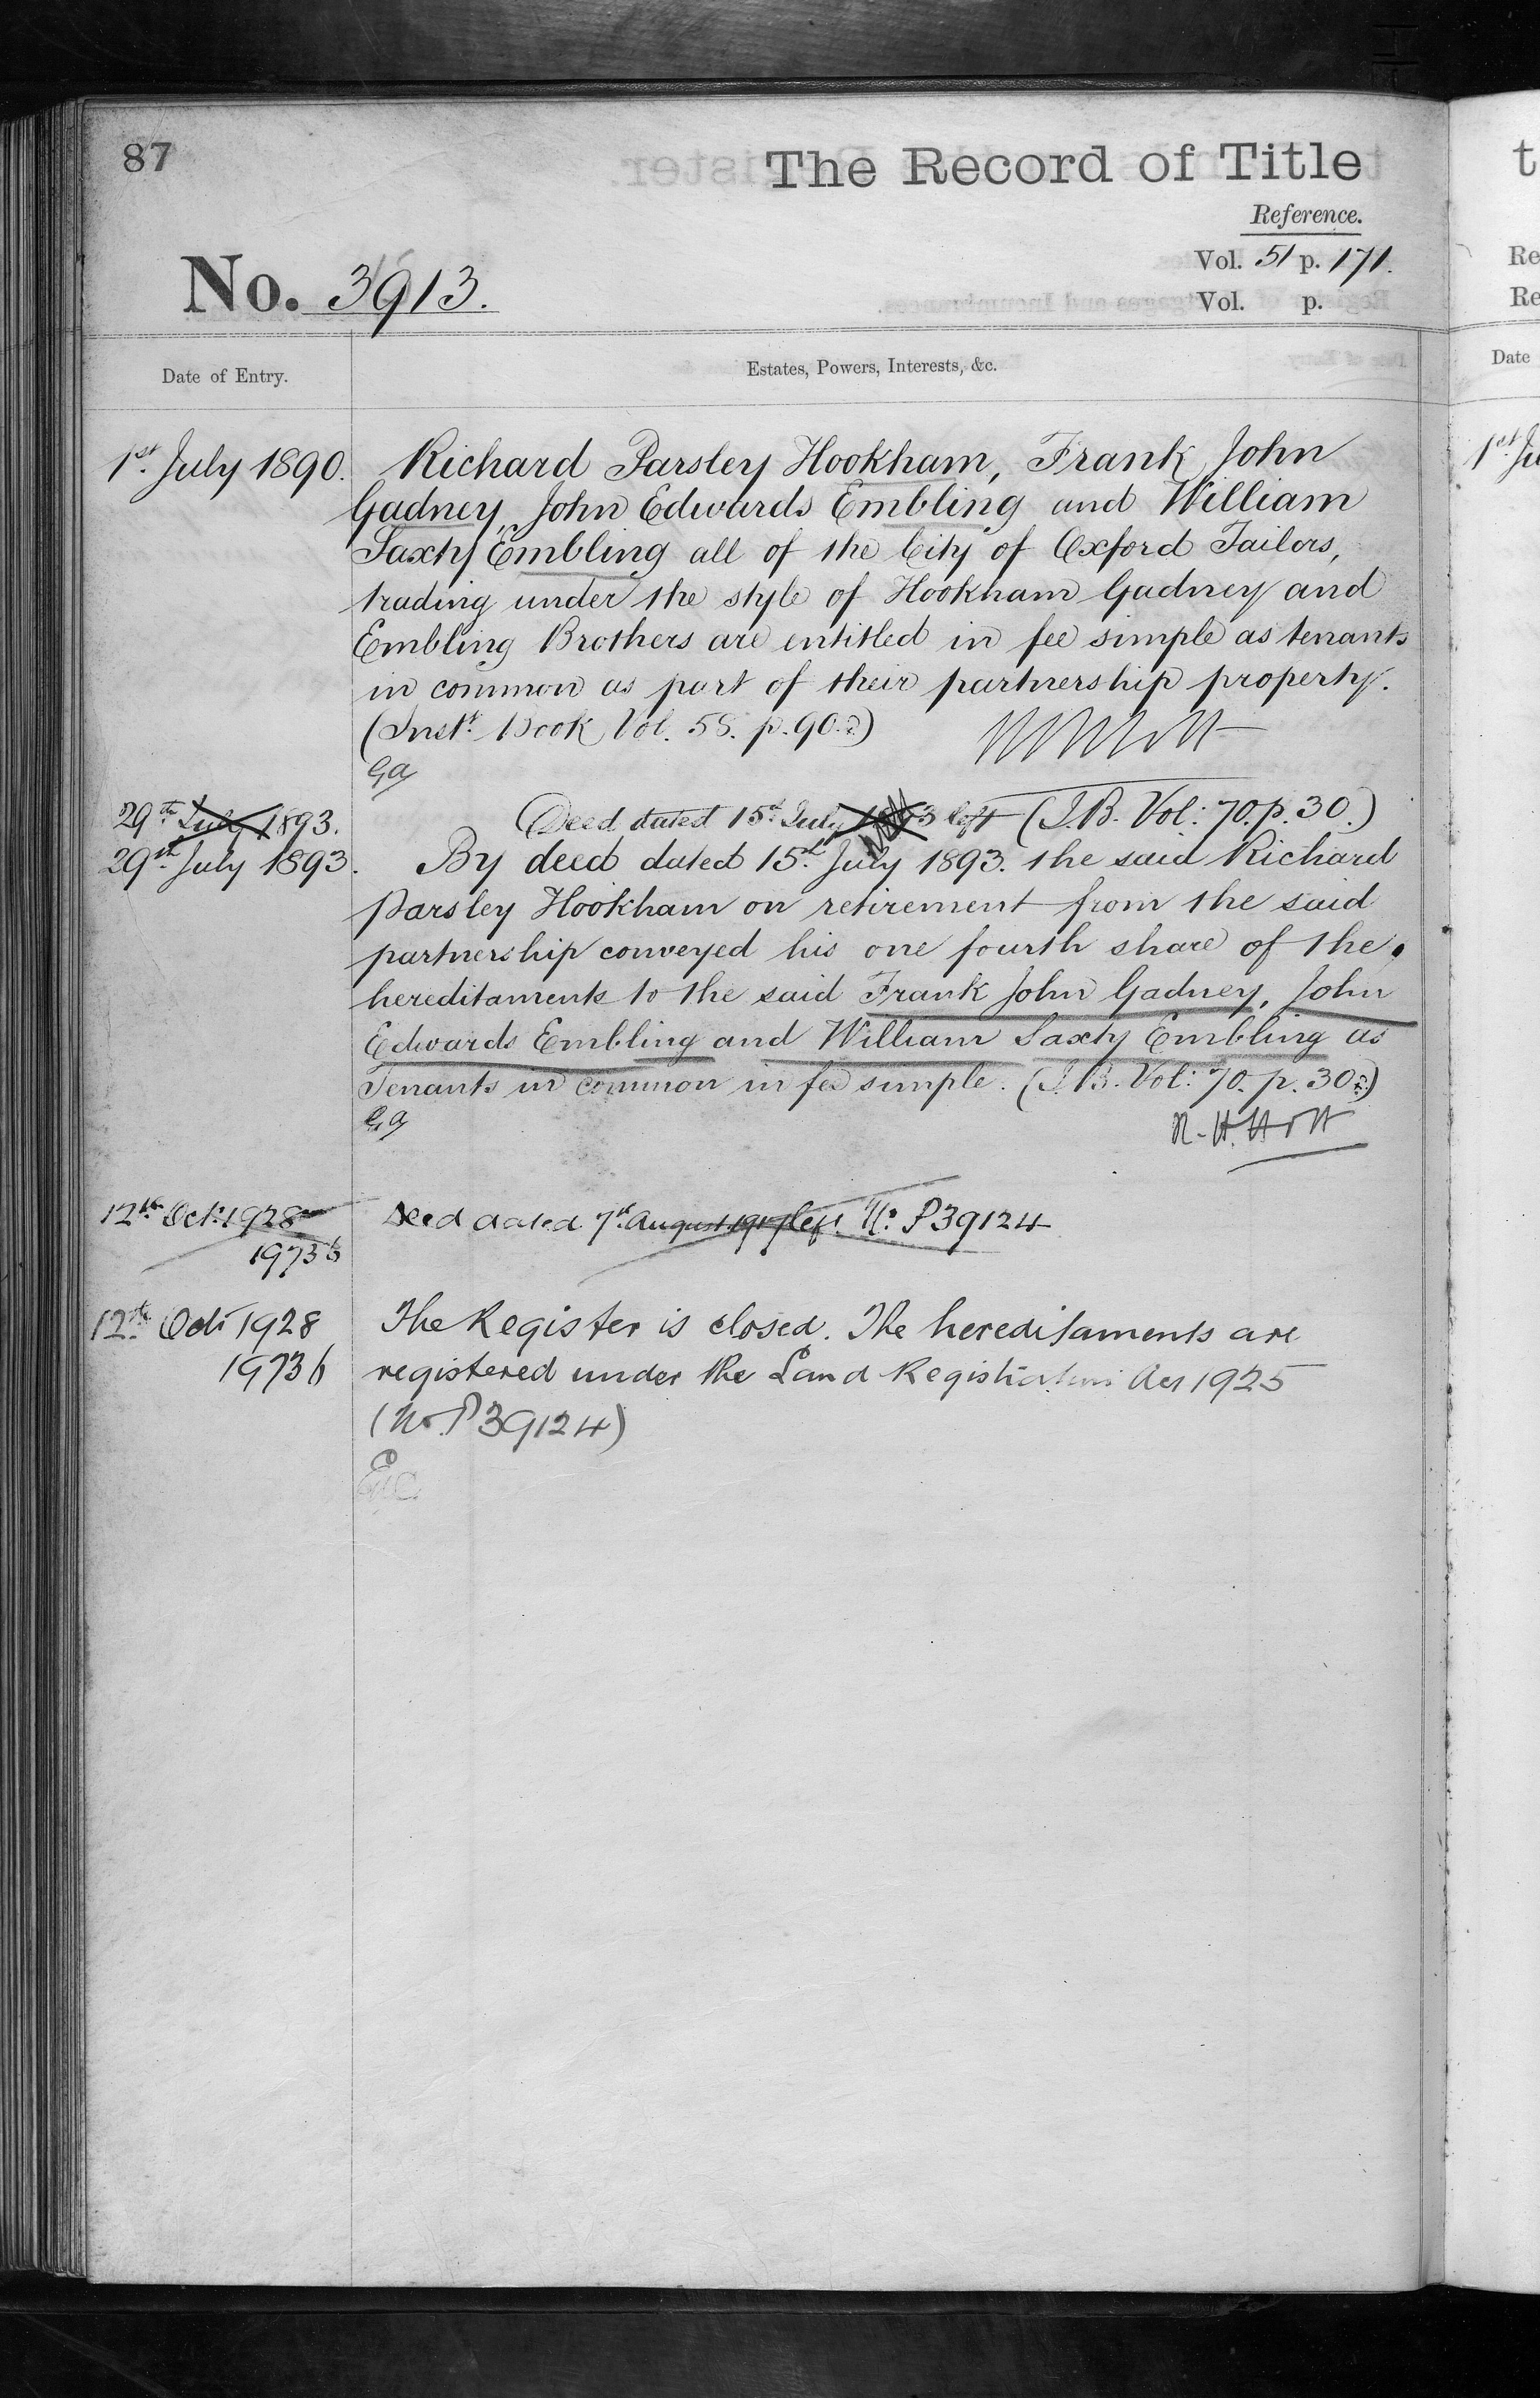 87
The Record of Title
Reference.
Vol. 51 p. 171.
No. 3913.
Vol. p.
Date of Entry.
Estates, Powers, Interests, &c.
1st July 1890.
Richard Parsley Hookham, Frank John
Gadney, John Edwards Embling and William
Saxty Embling all of the City of Oxford Tailors,
trading under the style of Hookham Gadney and
Embling Brothers are entitled in fee simple as tenants
in common as part of their partnership property.
(Inst. Book Vol. 58. p. 90.)
29th July 1893.
Deed dated 15th July 1893 left (I.B. Vol: 70. p. 30.)
29th July 1893.
By deed dated 15th July 1893. the said Richard
Parsley Hookham on retirement from the said
partnership conveyed his one fourth share of the
hereditaments to the said Frank John Gadney, John
Edwards Embling and William Saxty Embling as
Tenants in common in fee simple. (I.B. Vol: 70. p. 30.)
12th Oct. 1928
Deed dated 7th August 1917 left. No P39124
1973b
12th Oct 1928
The Register is closed. The hereditaments are
1973b
registered under the Land Registration Act 1925
(No. P39124)
t
Re
Re
Date
1st Ju